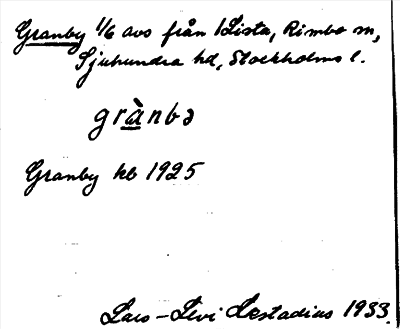 Granby 1/6 avs från 1 Lista, Rimbo sn,
Sjuhundra hd, Stockholms l.
grànbə
Granby kb 1925
Lars-Levi Læstadius 1933.